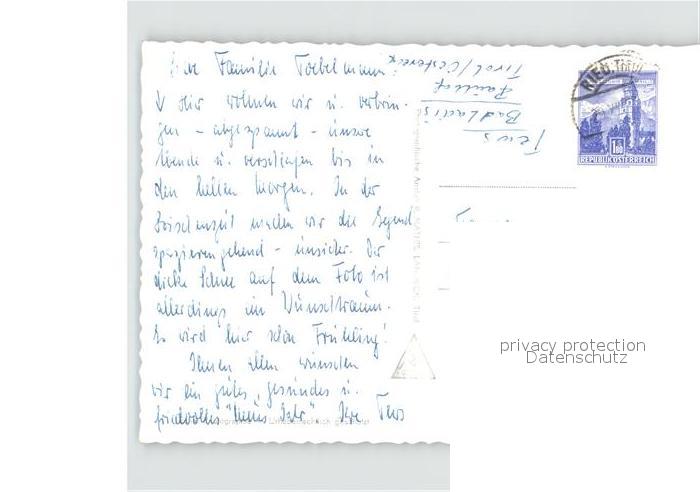 Liebe Familie Toebelmann!
↓ Hier wohnen wir u. verbrin-
gen – abgespannt – unsere
Abende u. verschlafen bis in
den hellen Morgen. In der
Zwischenzeit machen wir die Gegend
spazierengehend – unsicher. Der
dicke Schnee auf dem Foto ist
allerdings ein Wunschtraum.
Es wird hier schon Frühling!
Ihnen allen wünschen
wir ein gutes, gesundes u.
friedvolles "Neues Jahr". Ihre Tews
Tews
Bad Ladis
Tirol/Österreich
RIED, TIROL
1.80
REPUBLIK ÖSTERREICH
privacy protection
Datenschutz